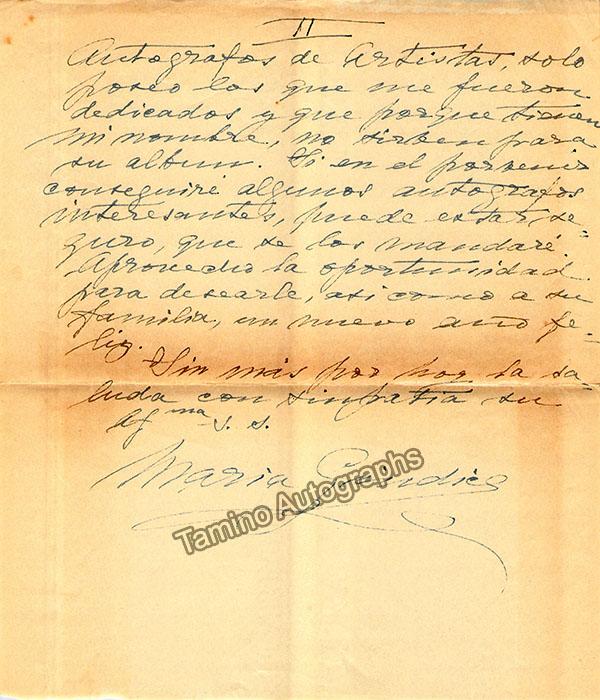 II
Autografos de Artistas, solo
poseo los que me fueron
dedicados y que porque tienen
mi nombre, no sirben para
su album. Si en el porvenir
conseguiré algunos autografos
interesantes, puede estar se-
guro, que se los mandaré.
Aprovecho la oportunidad
para desearle, asi como a su
familia, un nuevo año fe-
liz.
Sin más por hoy la sa-
luda con simpatia su
Af ma S. S.
Maria
Tamino Autographs